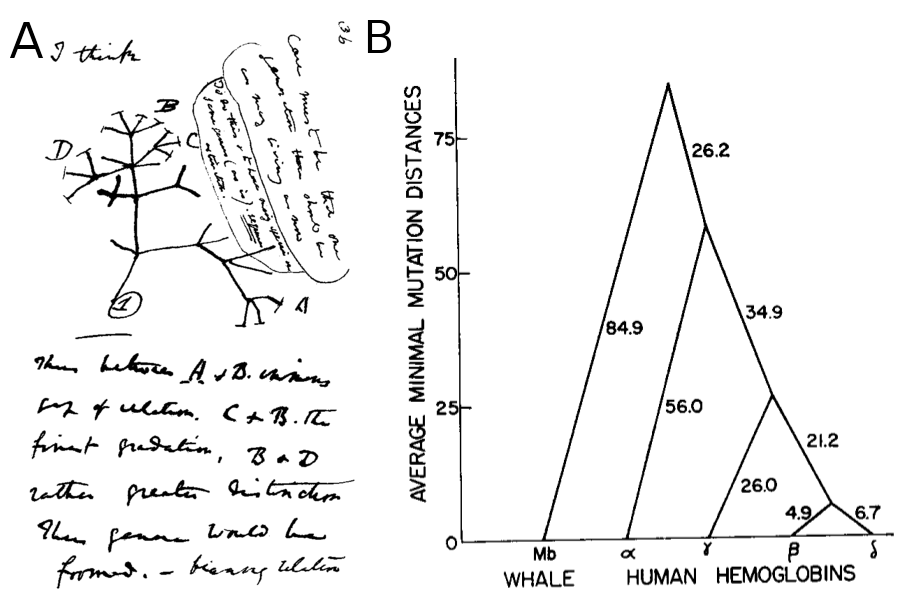 A
I think
36
Case must be that one
generation then should be
as many living as now
To do this & to have many species in
same genus (as is). requires
extinction.
B
C
D
A
1
Thus between A & B. immens
gap of relation. C & B. the
finest gradation, B & D
rather greater distinction
Thus genera would be
formed. — bearing relation
B
AVERAGE MINIMAL MUTATION DISTANCES
75
50
25
0
26.2
84.9
34.9
56.0
21.2
26.0
4.9
6.7
Mb α γ β δ
WHALE HUMAN HEMOGLOBINS